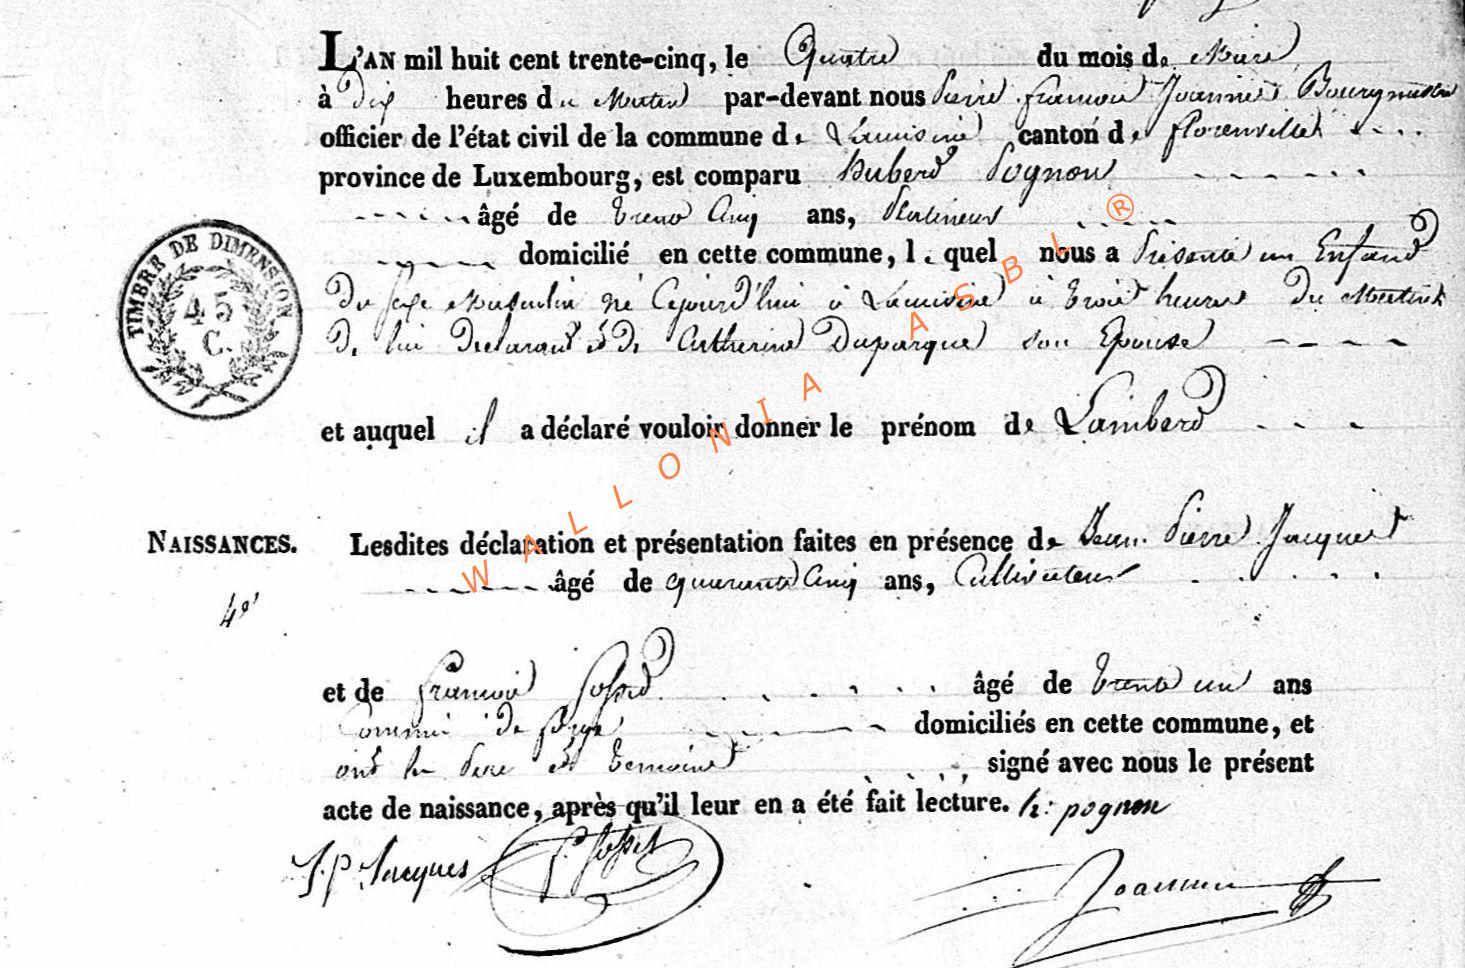 L'AN mil huit cent trente-cinq, le Quatre du mois de Mars
à Dix heures du Matin par-devant nous Pierre francois Joannes Bourgmestre
officier de l'état civil de la commune de canton de florenville
province de Luxembourg, est comparu Huberd Pognon
âgé de trente Cinq ans,
domicilié en cette commune, le quel nous a présenté un Enfand
Du sexe Masculin né Cejourd'hui à à trois heures Du Matin
De lui Déclarant et De Catherine Duparque son Epouse
et auquel il a déclaré vouloir donner le prénom de Lamberd
TIMBRE DE DIMENSION
45
C.
NAISSANCES.
Lesdites déclaration et présentation faites en présence de Jean Pierre Jacques
âgé de quarante Cinq ans, Cultivateur
4e
et de francois âgé de trente un ans
Commis de forge domiciliés en cette commune, et
ont le Pere et temoins signé avec nous le présent
acte de naissance, après qu'il leur en a été fait lecture. h: pognon
J.P. Jacques
WALLONIA ASBL ®